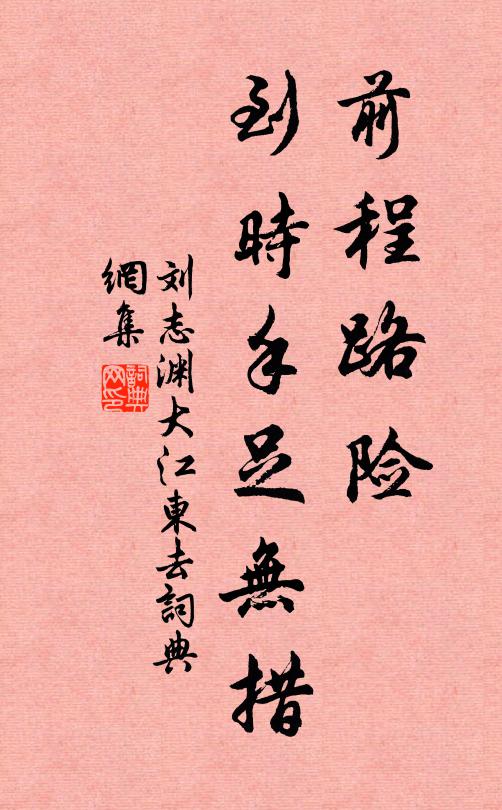 前程路险
到時手足無措
刘志渊大江東去詞典
網集
詞典
网印